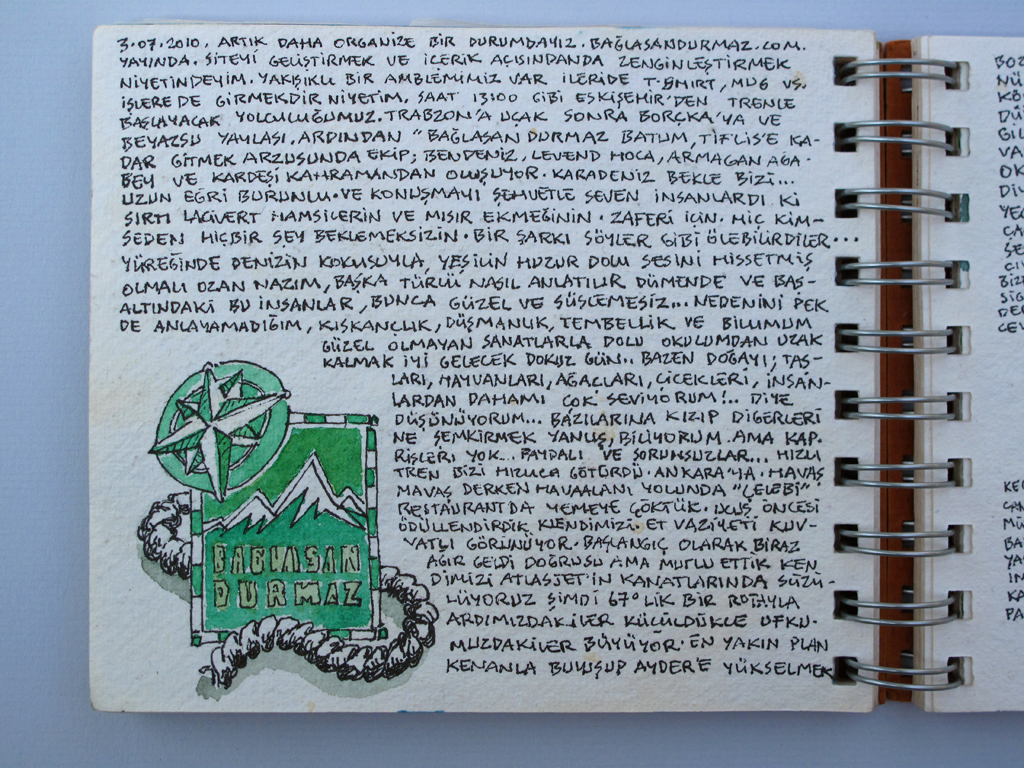 3.07.2010. ARTIK DAHA ORGANİZE BİR DURUMDAYIZ. BAĞLASANDURMAZ.COM.
YAYINDA. SİTEYİ GELİŞTİRMEK VE İÇERİK AÇISINDANDA ZENGİNLEŞTİRMEK
NİYETİNDEYİM. YAKIŞIKLI BİR AMBLEMİMİZ VAR İLERİDE T-SHIRT, MUG VS.
İŞLERE DE GİRMEKDİR NİYETİM. SAAT 13:00 GİBİ ESKİŞEHİR'DEN TRENLE
BAŞLAYACAK YOLCULUĞUMUZ. TRABZON'A UÇAK SONRA BORÇKA'YA VE
BEYAZSU YAYLASI. ARDINDAN "BAĞLASAN DURMAZ BATUM, TİFLİS'E KA-
DAR GİTMEK ARZUSUNDA EKİP; BENDENİZ, LEVEND HOCA, ARMAĞAN AĞA-
BEY VE KARDEŞİ KAHRAMANDAN OLUŞUYOR. KARADENİZ BEKLE BİZİ...
UZUN EĞRİ BURUNLU. VE KONUŞMAYI ŞEHVETLE SEVEN İNSANLARDI Kİ
SIRTI LACİVERT HAMSİLERİN VE MISIR EKMEĞİNİN. ZAFERİ İÇİN. HİÇ KİM-
SEDEN HİÇBİR ŞEY BEKLEMEKSİZİN. BİR ŞARKI SÖYLER GİBİ ÖLEBİLİRDİLER...
YÜREĞİNDE DENİZİN KOKUSUYLA, YEŞİLİN HUZUR DOLU SESİNİ HİSSETMİŞ
OLMALI OZAN NAZIM, BAŞKA TÜRLÜ NASIL ANLATILIR DÜMENDE VE BAŞ-
ALTINDAKİ BU İNSANLAR, BUNCA GÜZEL VE SÜSLEMESİZ... NEDENİNİ PEK
DE ANLAYAMADIĞIM, KISKANÇLIK, DÜŞMANLIK, TEMBELLİK VE BİLUMUM
GÜZEL OLMAYAN SANATLARLA DOLU OKULUMDAN UZAK
KALMAK İYİ GELECEK DOKUZ GÜN.. BAZEN DOĞAYI; TAŞ-
LARI, HAYVANLARI, AĞAÇLARI, ÇİÇEKLERİ, İNSAN-
LARDAN DAHAMI ÇOK SEVİYORUM!.. DİYE
DÜŞÜNÜYORUM... BAZILARINA KIZIP DİĞERLERİ
NE SEMKİRMEK YANLIŞ, BİLİYORUM. AMA KAP-
RİSLERİ YOK.. FAYDALI VE SORUNSUZLAR... HIZLI
TREN BİZİ HIZLICA GÖTÜRDÜ. ANKARA'YA. HAVAŞ
MAVAŞ DERKEN HAVAALANI YOLUNDA "ÇELEBİ"
RESTAURANTDA YEMEYE ÇÖKTÜK. UÇUŞ ÖNCESİ
ÖDÜLLENDİRDİK KENDİMİZİ. ET VAZİYETİ KUV-
VATLI GÖRÜNÜYOR. BAŞLANGIÇ OLARAK BİRAZ
AĞIR GELDİ DOĞRUSU AMA MUTLU ETTİK KEN
DİMİZİ ATLASJET'İN KANATLARINDA SÜZÜ-
LÜYORUZ ŞİMDİ 67° LİK BİR ROTAYLA
ARDIMIZDAKİLER KÜÇÜLDÜKÇE UFKU-
MUZDAKİLER BÜYÜYOR. EN YAKIN PLAN
KENANLA BULUŞUP AYDER'E YÜKSELMEK
BAĞLASAN
DURMAZ